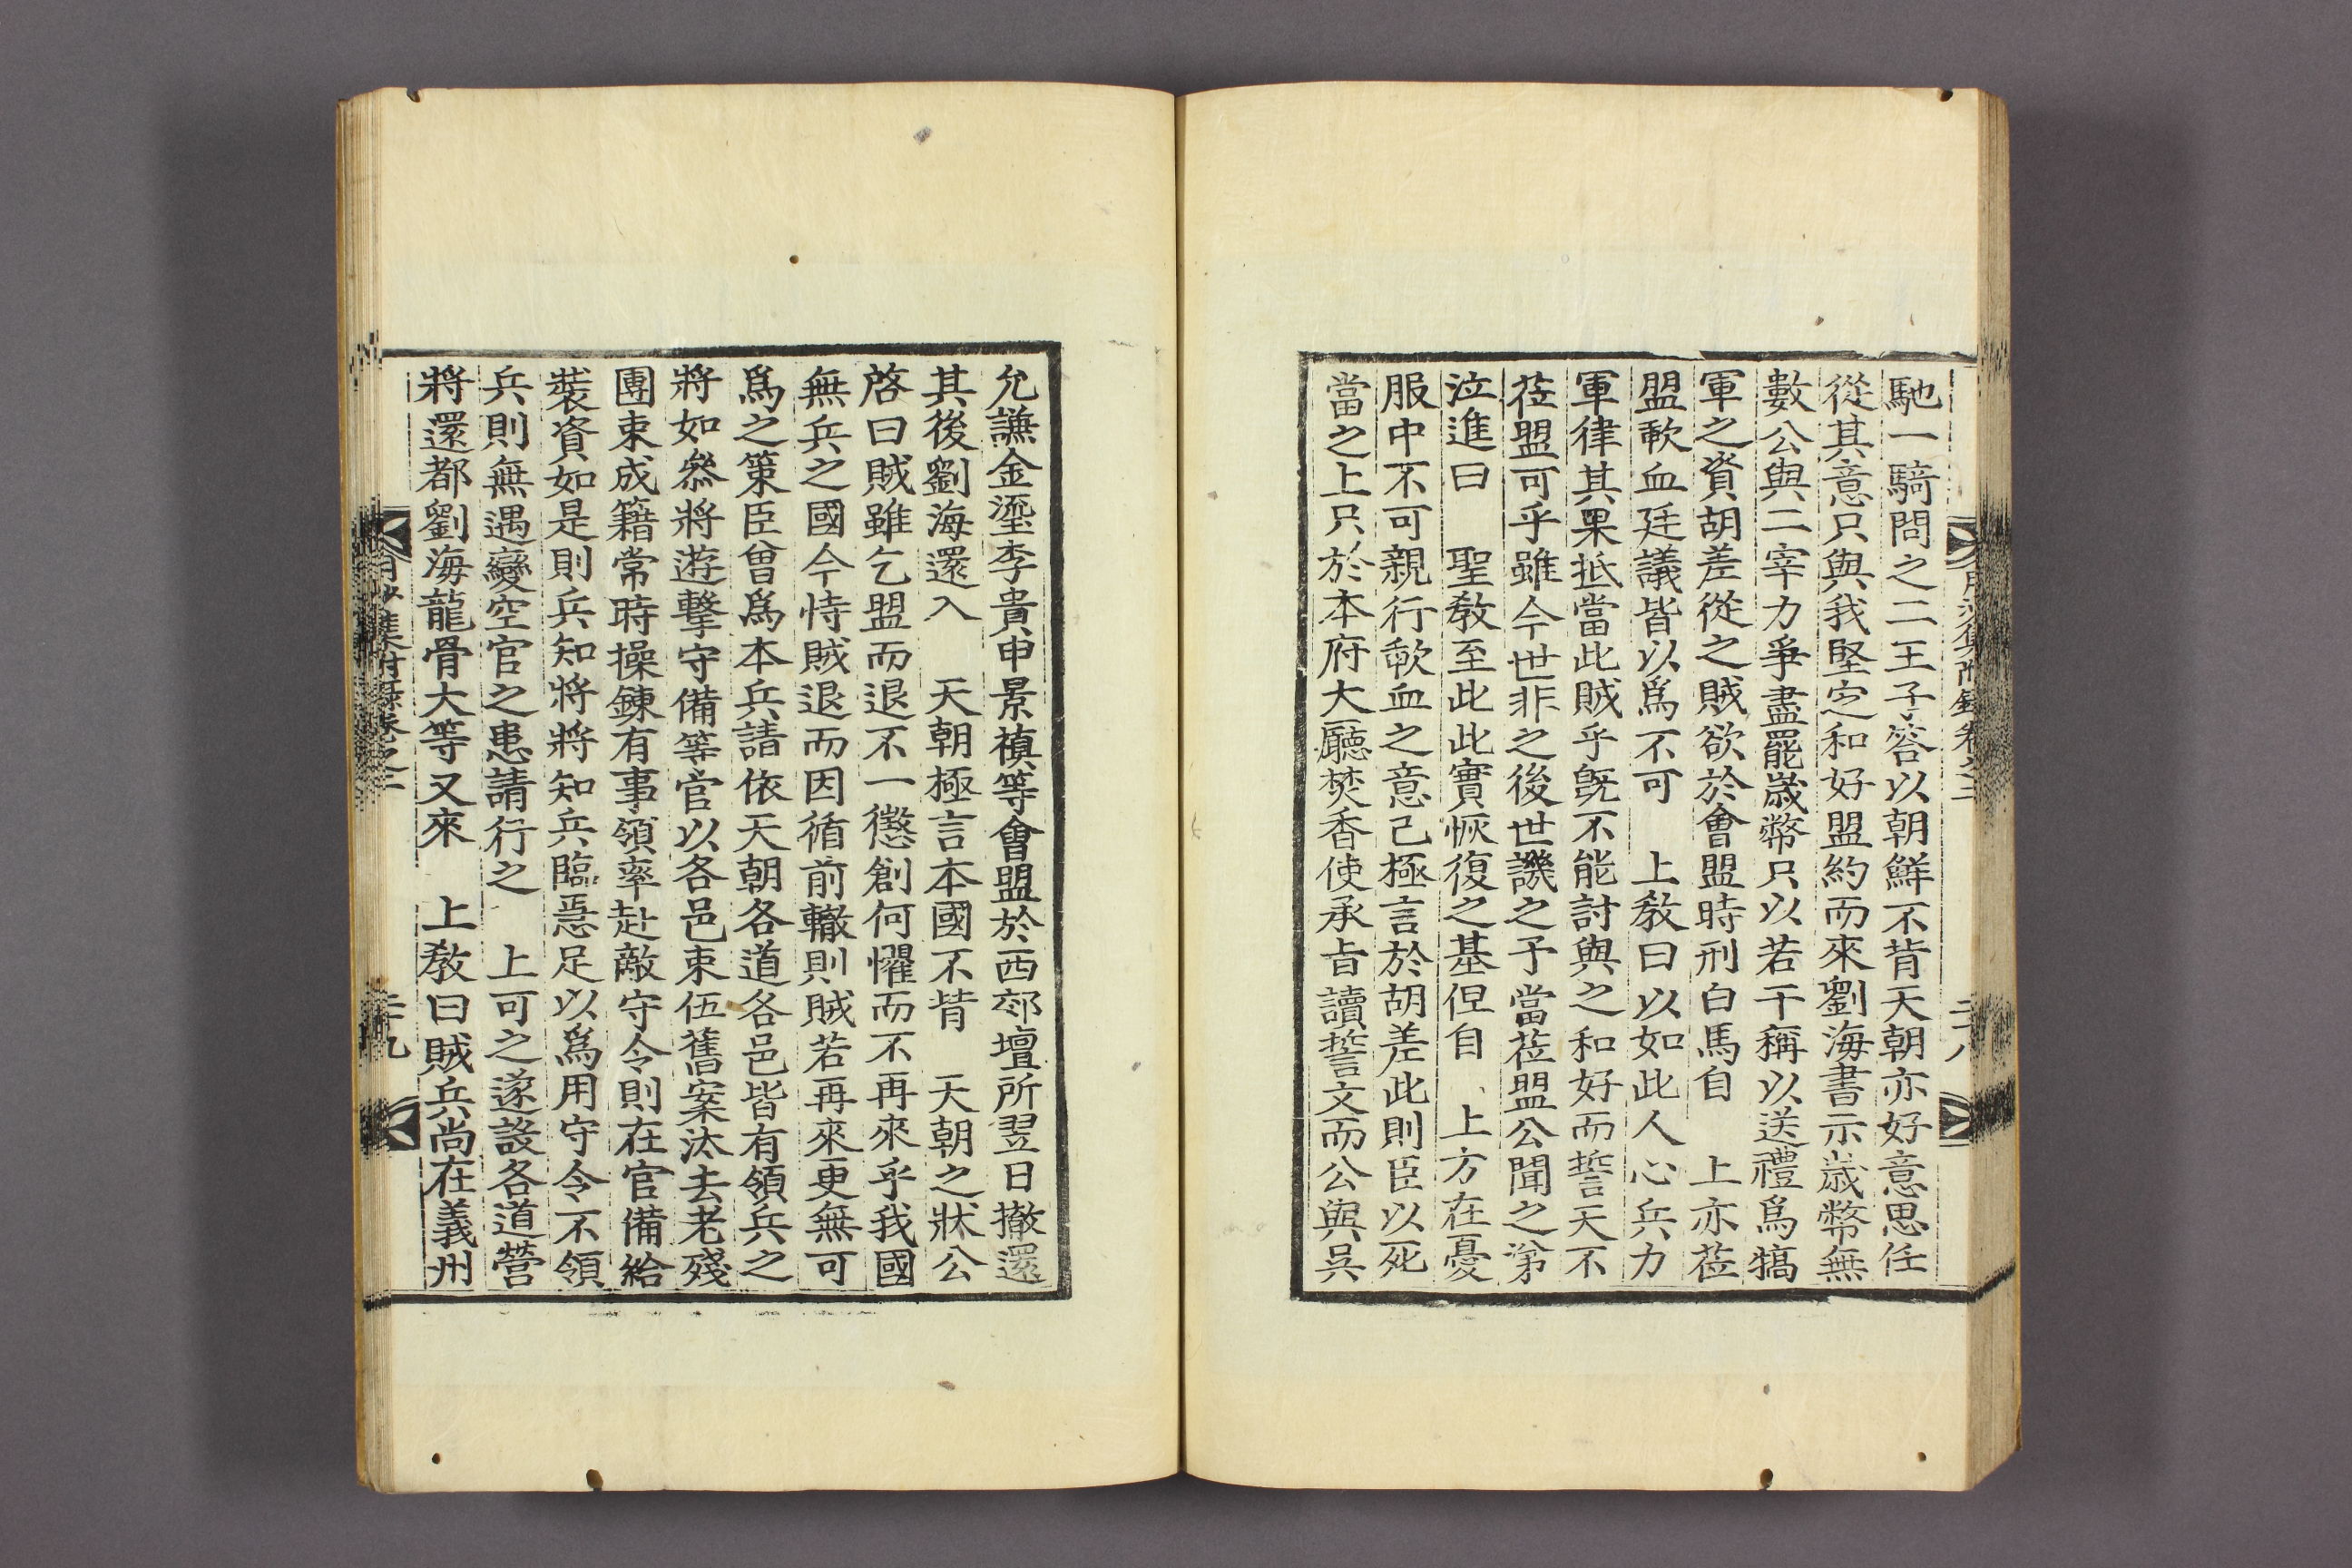 馳一騎問之二王子答以朝鮮不背天朝亦好意思任
從其意只與我堅定和好盟約而來劉海書示歲幣無
數公與二宰力爭盡罷歲幣只以若干稱以送禮爲犒
軍之資胡差從之賊欲於會盟時刑白馬自　上亦莅
盟歃血廷議皆以爲不可　上敎曰以如此人心兵力
軍律其果抵當此賊乎旣不能討與之和好而誓天不
莅盟可乎雖今世非之後世譏之予當莅盟公聞之涕
泣進曰　聖敎至此此實恢復之基但自　上方在憂
服中不可親行歃血之意己極言於胡差此則臣以死
當之上只於本府大廳焚香使承旨讀誓文而公與吳
允謙金瑬李貴申景禛等會盟於西郊壇所翌日撤還
其後劉海還入　天朝極言本國不背　天朝之狀公
啓曰賊雖乞盟而退不一懲創何懼而不再來乎我國
無兵之國今恃賊退而因循前轍則賊若再來更無可
爲之策臣曾爲本兵請依天朝各道各邑皆有領兵之
將如叅將遊擊守備等官以各邑束伍舊案汰去老殘
團束成籍常時操鍊有事領率赴敵守令則在官備給
裝資如是則兵知將將知兵臨急足以爲用守令不領
兵則無遇變空官之患請行之　上可之遂設各道營
將還都劉海龍骨大等又來　上敎曰賊兵尚在義州